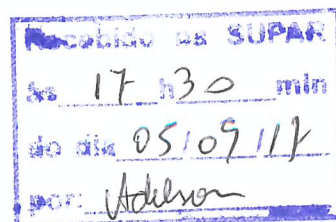 Recebido na SUPAR
às 17 h 30 min
do dia 05/09/17
por: Adelson